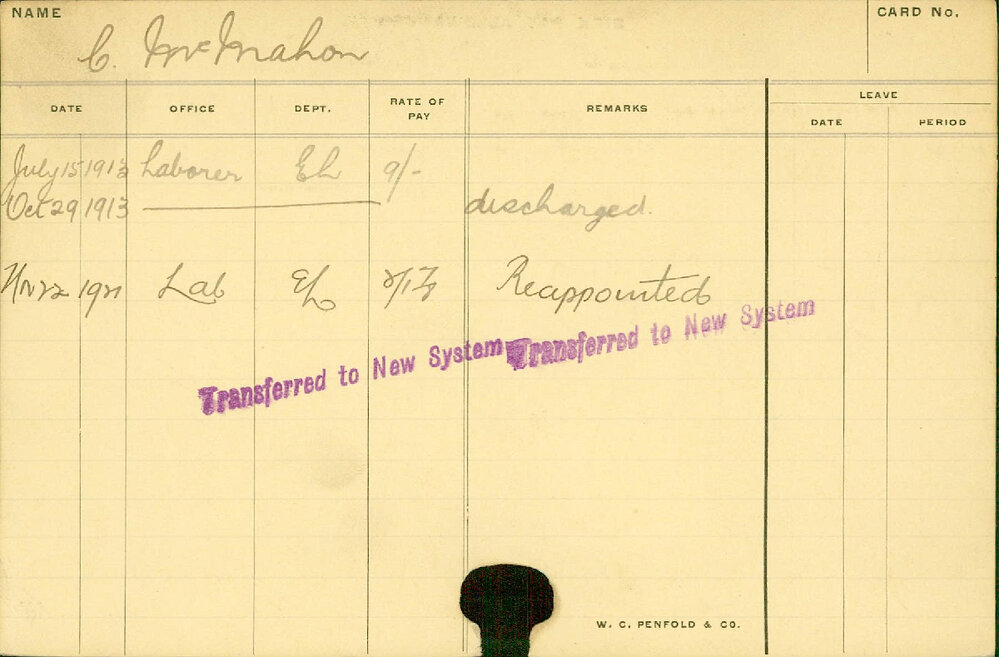 NAME
CARD No.
C. McMahon
DATE OFFICE DEPT. RATE OF PAY REMARKS LEAVE
DATE PERIOD
July 15 1913 Laborer EL 9/-
Oct 29 1913 discharged.
22 1921 Lab EL Reappointed
Transferred to New System Transferred to New System
W. C. PENFOLD & CO.